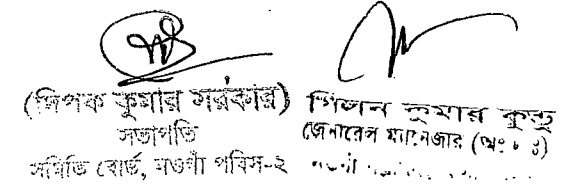 (দিপক কুমার সরকার)
সভাপতি
সমিতি বোর্ড, নওগাঁ পবিস-২
মিলন কুমার কুন্ডু
জেনারেল ম্যানেজার (অঃ দাঃ)
নওগাঁ